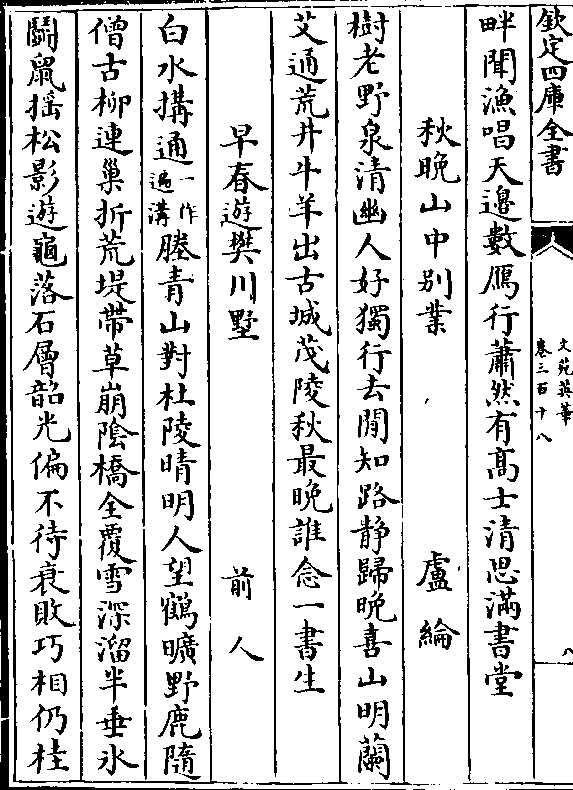 欽定四庫全書
文苑英華
卷三百十八
八
畔聞漁唱天邉數鴈行蕭然有髙士清思滿書堂
秋晩山中别業 盧綸
樹老野泉清幽人好獨行去閒知路静歸晩喜山明蘭
艾通荒井牛羊出古城茂陵秋最晩誰念一書生
早春遊樊川墅 前人
白水搆通一作遍溝塍青山對杜陵晴明人望鶴曠野鹿隨
僧古柳連巢折荒堤帶草崩陰橋全覆雪深溜半垂氷
鬭鼠揺松影遊龜落石層韶光偏不待衰敗巧相仍桂